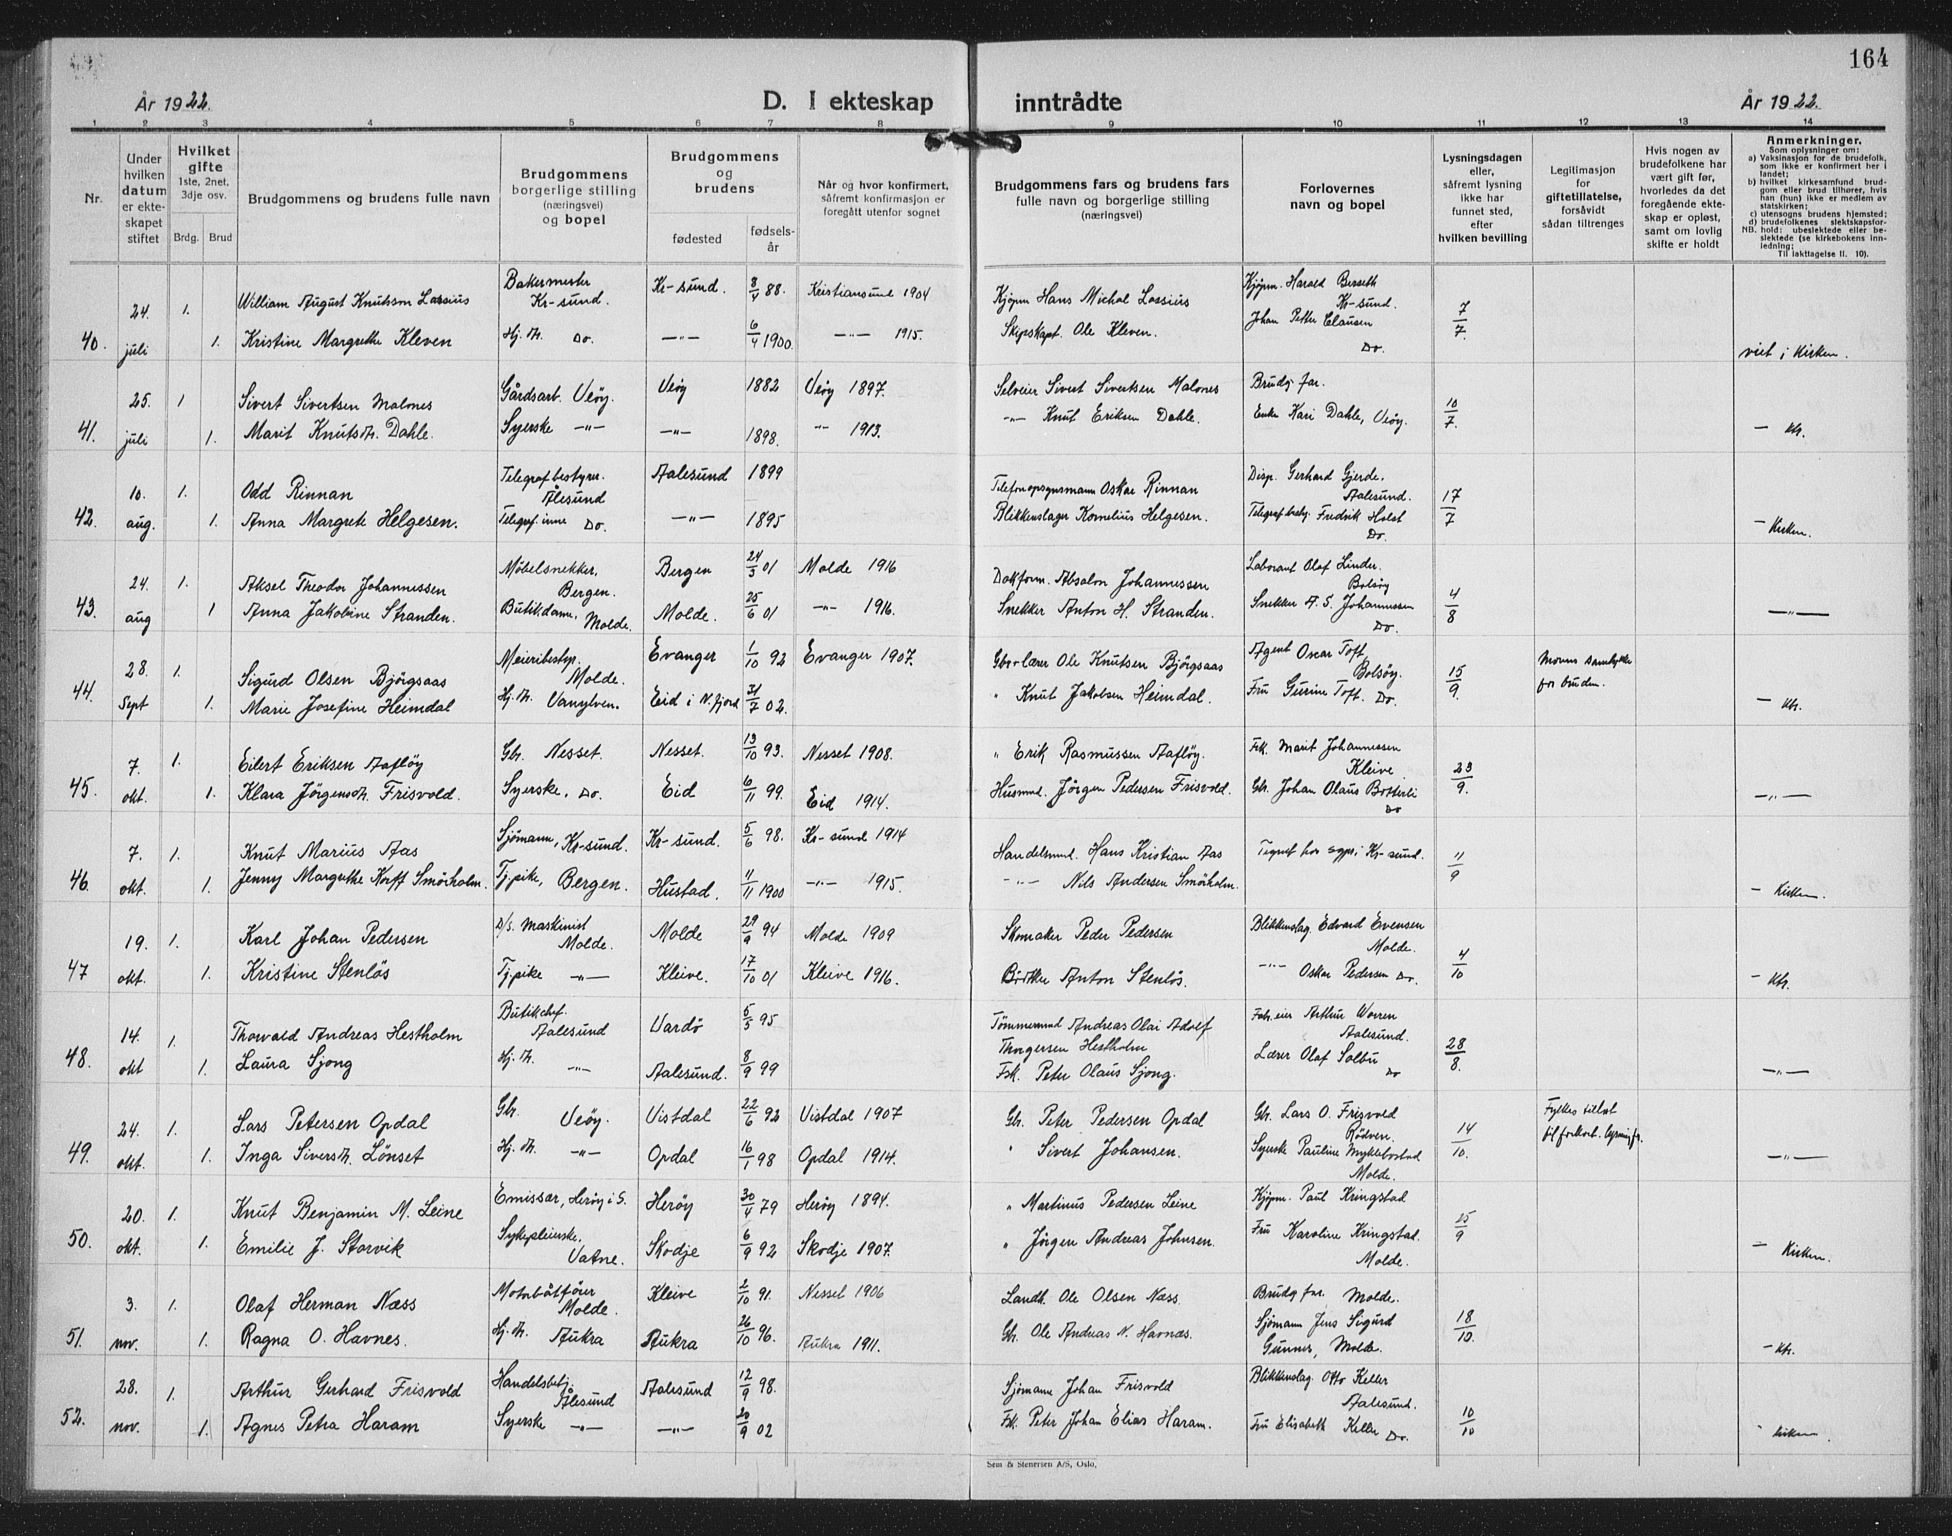 164
År 1922.
D. I ekteskap inntrådte
År 1922.
1 2 3 4 5 6 7 8 9 10 11 12 13 14
Nr.
Under hvilken datum er ekteskapet stiftet
Hvilket gifte 1ste, 2net, 3dje osv.
Brdg. Brud
Brudgommens og brudens fulle navn
Brudgommens borgerlige stilling (næringsvei) og bopel
Brudgommens og brudens
fødested
fødselsår
Når og hvor konfirmert, såfremt konfirmasjon er foregått utenfor sognet
Brudgommens fars og brudens fars fulle navn og borgerlige stilling (næringsvei)
Forlovernes navn og bopel
Lysningsdagen eller, såfremt lysning ikke har funnet sted, efter hvilken bevilling
Legitimasjon for giftetillatelse, forsåvidt sådan tiltrenges
Hvis nogen av brudefolkene har vært gift før, hvorledes da det foregående ekteskap er opløst, samt om lovlig skifte er holdt
Anmerkninger.
Som oplysninger om:
a) Vaksinasjon for de brudefolk, som ikke er konfirmert her i landet;
b) hvilket kirkesamfund brudgom eller brud tilhører, hvis han (hun) ikke er medlem av statskirken;
c) utensogns brudens hjemsted;
d) brudefolkenes slektskapsforhold: ubeslektede eller beslektede (se kirkebokens innledning;
NB. Til iakttagelse ll. 10).
40. 24. juli 1. William August Knutson Lossius Bakermester Kr-sund. Kr-sund. 3/4 88. Kristiansund 1904 Kjøpm Hans Michal Lossius Kjøpm. Harald Berseth Kr-sund. 7/7
1. Kristine Margrethe Kleven Hj. dt. Do. —"— 6/4 1900. —"— 1915. Skipskapt. Ole Kleven. Johan Petter Clausen Do. viet i Kirken.
41. 25. juli 1 Sivert Sivertsen Malones Gårdsarb. Veöy. Veöy 1882 Veöy 1897. Selveier Sivert Sivertsen Malones Brudg. far. 10/7.
1. Marit Knutsdt. Dahle. Syerske —"— —"— 1898. —"— 1913. —"— Knut Eriksen Dahle. Enke Kari Dahle, Veöy. — Ktr.
42. 10. aug. 1. Odd Rinnan Telegrafbestyrer Ålesund Aalesund 1899 Telefonopsynsmann Oskar Rinnan Disp. Gerhard Gjerde, Aalesund. 17/7
1. Anna Margrete Helgesen. Telegraf.inne Do. —"— 1895 Blikkenslager Kornelius Helgesen. Telegrafbesty. Fredrik Holst Do. — Kirken.
43. 24. aug 1. Aksel Theodor Johannessen Möbelsnekker, Bergen. Bergen 24/3 01 Molde 1916 Dokform. Absalon Johannessen Laborant Olaf Linder. Bolsöy 4/8
1 Anna Jakobine Stranden. Butikdame, Molde. Molde. 25/6 01 —"— 1916. Snekker Anton H. Stranden. Snekker A. S. Johannessen Do. —"—
44. 28. Sept 1. Sigurd Olsen Bjørgsaas Meieribestyr. Molde. Evanger 1/10 92 Evanger 1907. Gbr+lærer Ole Knutsen Bjørgsaas Agent Oscar Toft, Bolsöy. 15/9 Morens samtykke for bruden.
1. Marie Josefine Heimdal Hj. dt. Vanylven. Eid i N. fjord 31/7 02. " Knut Jakobsen Heimdal. Fru Gurine Toft. Do. — Ktr.
45. 7. okt. 1. Eilert Eriksen Aaflöy Gbr. Nesset. Nesset. 13/10 93. Nesset 1908. " Erik Rasmussen Aaflöy. Frk. Marit Johannessen Kleive 23/9.
1. Klara Jörgensdt. Frisvold. Syerske. Do. Eid 6/11 99. Eid 1914. Husmd. Jörgen Pedersen Frisvold. Gbr. Johan Olaus Botterli Do —"—
46. 7. okt. 1. Knut Marius Aas Sjömann, Kr-sund. Kr-sund. 5/6 98. Kr-sund 1914 Handelsmd. Hans Kristian Aas Tegnet hos sgpr. i Kr-sund. 11/9
1. Jenny Margrethe Korff Smörholm. Tj.pike, Bergen. Hustad. 11/11 1900 —"— 1915. —"— Nils Andersen Smörholm. — Kirken.
47 19. okt. 1. Karl Johan Pedersen D/S. Maskinist Molde. Molde 29/9 94 Molde 1909 Skomaker Peder Pedersen Blikkenslag. Edvard Evensen Molde. 4/10
1. Kristine Stenlös Tj.pike —"— Kleive. 17/10 01 Kleive 1916. Anton Stenlös. —"— Oskar Pedersen Do. — Ktr.
48. 14. okt 1. Thorvald Andreas Hestholm Butikchef. Aalesund Vardö 5/5 95 Tömmermnd Andreas Olai Adolf Thorgersen Hestholm Fabr.eier Arthur Worren Aalesund. 28/8.
1. Laura Sjong Hj. dt. —"— Aalesund. 8/9 99 Fsk. Peter Olaus Sjong. Lærer Olaf Solbu Do —"—
49. 24. okt. 1. Lars Petersen Opdal Gbr. Veöy. Vistdal 22/6 92 Vistdal 1907 Gbr. Peter Pedersen Opdal Gbr. Lars O. Frisvold Rödven. 14/10. Fylkes tillat til forkort. lysning fr.
1. Inga Siversdt. Lönset Hj. dt. —"— Opdal 16/1 98 Opdal 1914. " Sivert Johansen. Syerske Pauline Myklebostad Molde. —"—
50. 20. okt. 1. Knut Benjamin M. Leine Emissær, Heröy i S. Heröy 30/4 79 Heröy 1894. " Martinus Pedersen Leine Kjøpm. Paul Kringstad 25/9
1. Emilie J. Storvik Sykepleierske. Vatne. Skodje 6/9 92 Skodje 1907. " Jörgen Andreas Johnsen. Fru Karoline Kringstad. Molde. — Kirken.
51. 3. nov. 1. Olaf Herman Næss Motorbåtförer Molde. Kleive 2/10 91. Nesset 1906 Landh. Ole Olsen Næss Brudg far. Molde. 18/10.
1. Ragna O. Havnes. Hj. dt. Aukra Aukra 26/10 96. Aukra 1911. Gbr. Ole Andreas N. Havnæs. Sjömann Jens Sigurd Gunner, Molde. — Ktr.
52. 28. nov. 1. Arthur Gerhard Frisvold Handelsbetj. Ålesund Aalesund 12/9 98. Sjömann Johan Frisvold Blikkenslag. Otto Keller Aalesund. 10/10
1. Agnes Petra Haram Syerske —"— —"— 20/9 02 Fsk. Peter Johan Elias Haram. Fru Elisabeth Keller Do. kirken.
Sem & Stenersen A/S, Oslo.